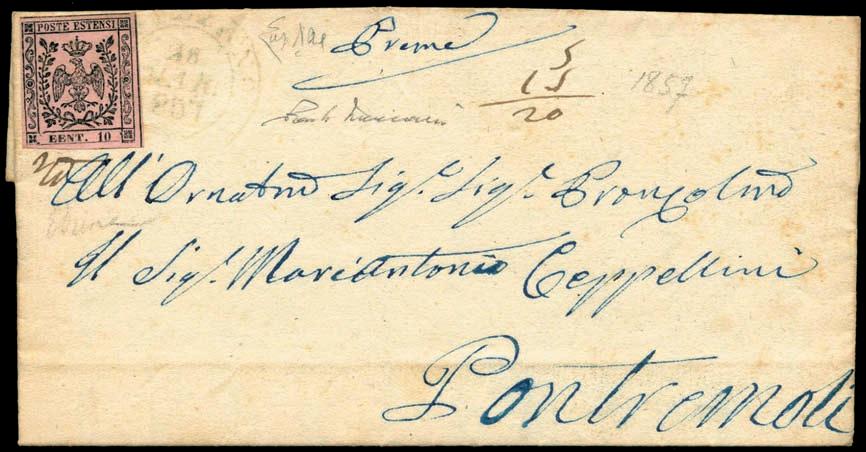 POSTE ESTENSI
EENT. 10
MAR.
857
Preme
5
15
20
1857
All' Ornatmo Sigr. Sigr. Pronzolmo
Il Sigr. Mariantonio Ceppellini
Pontremoli